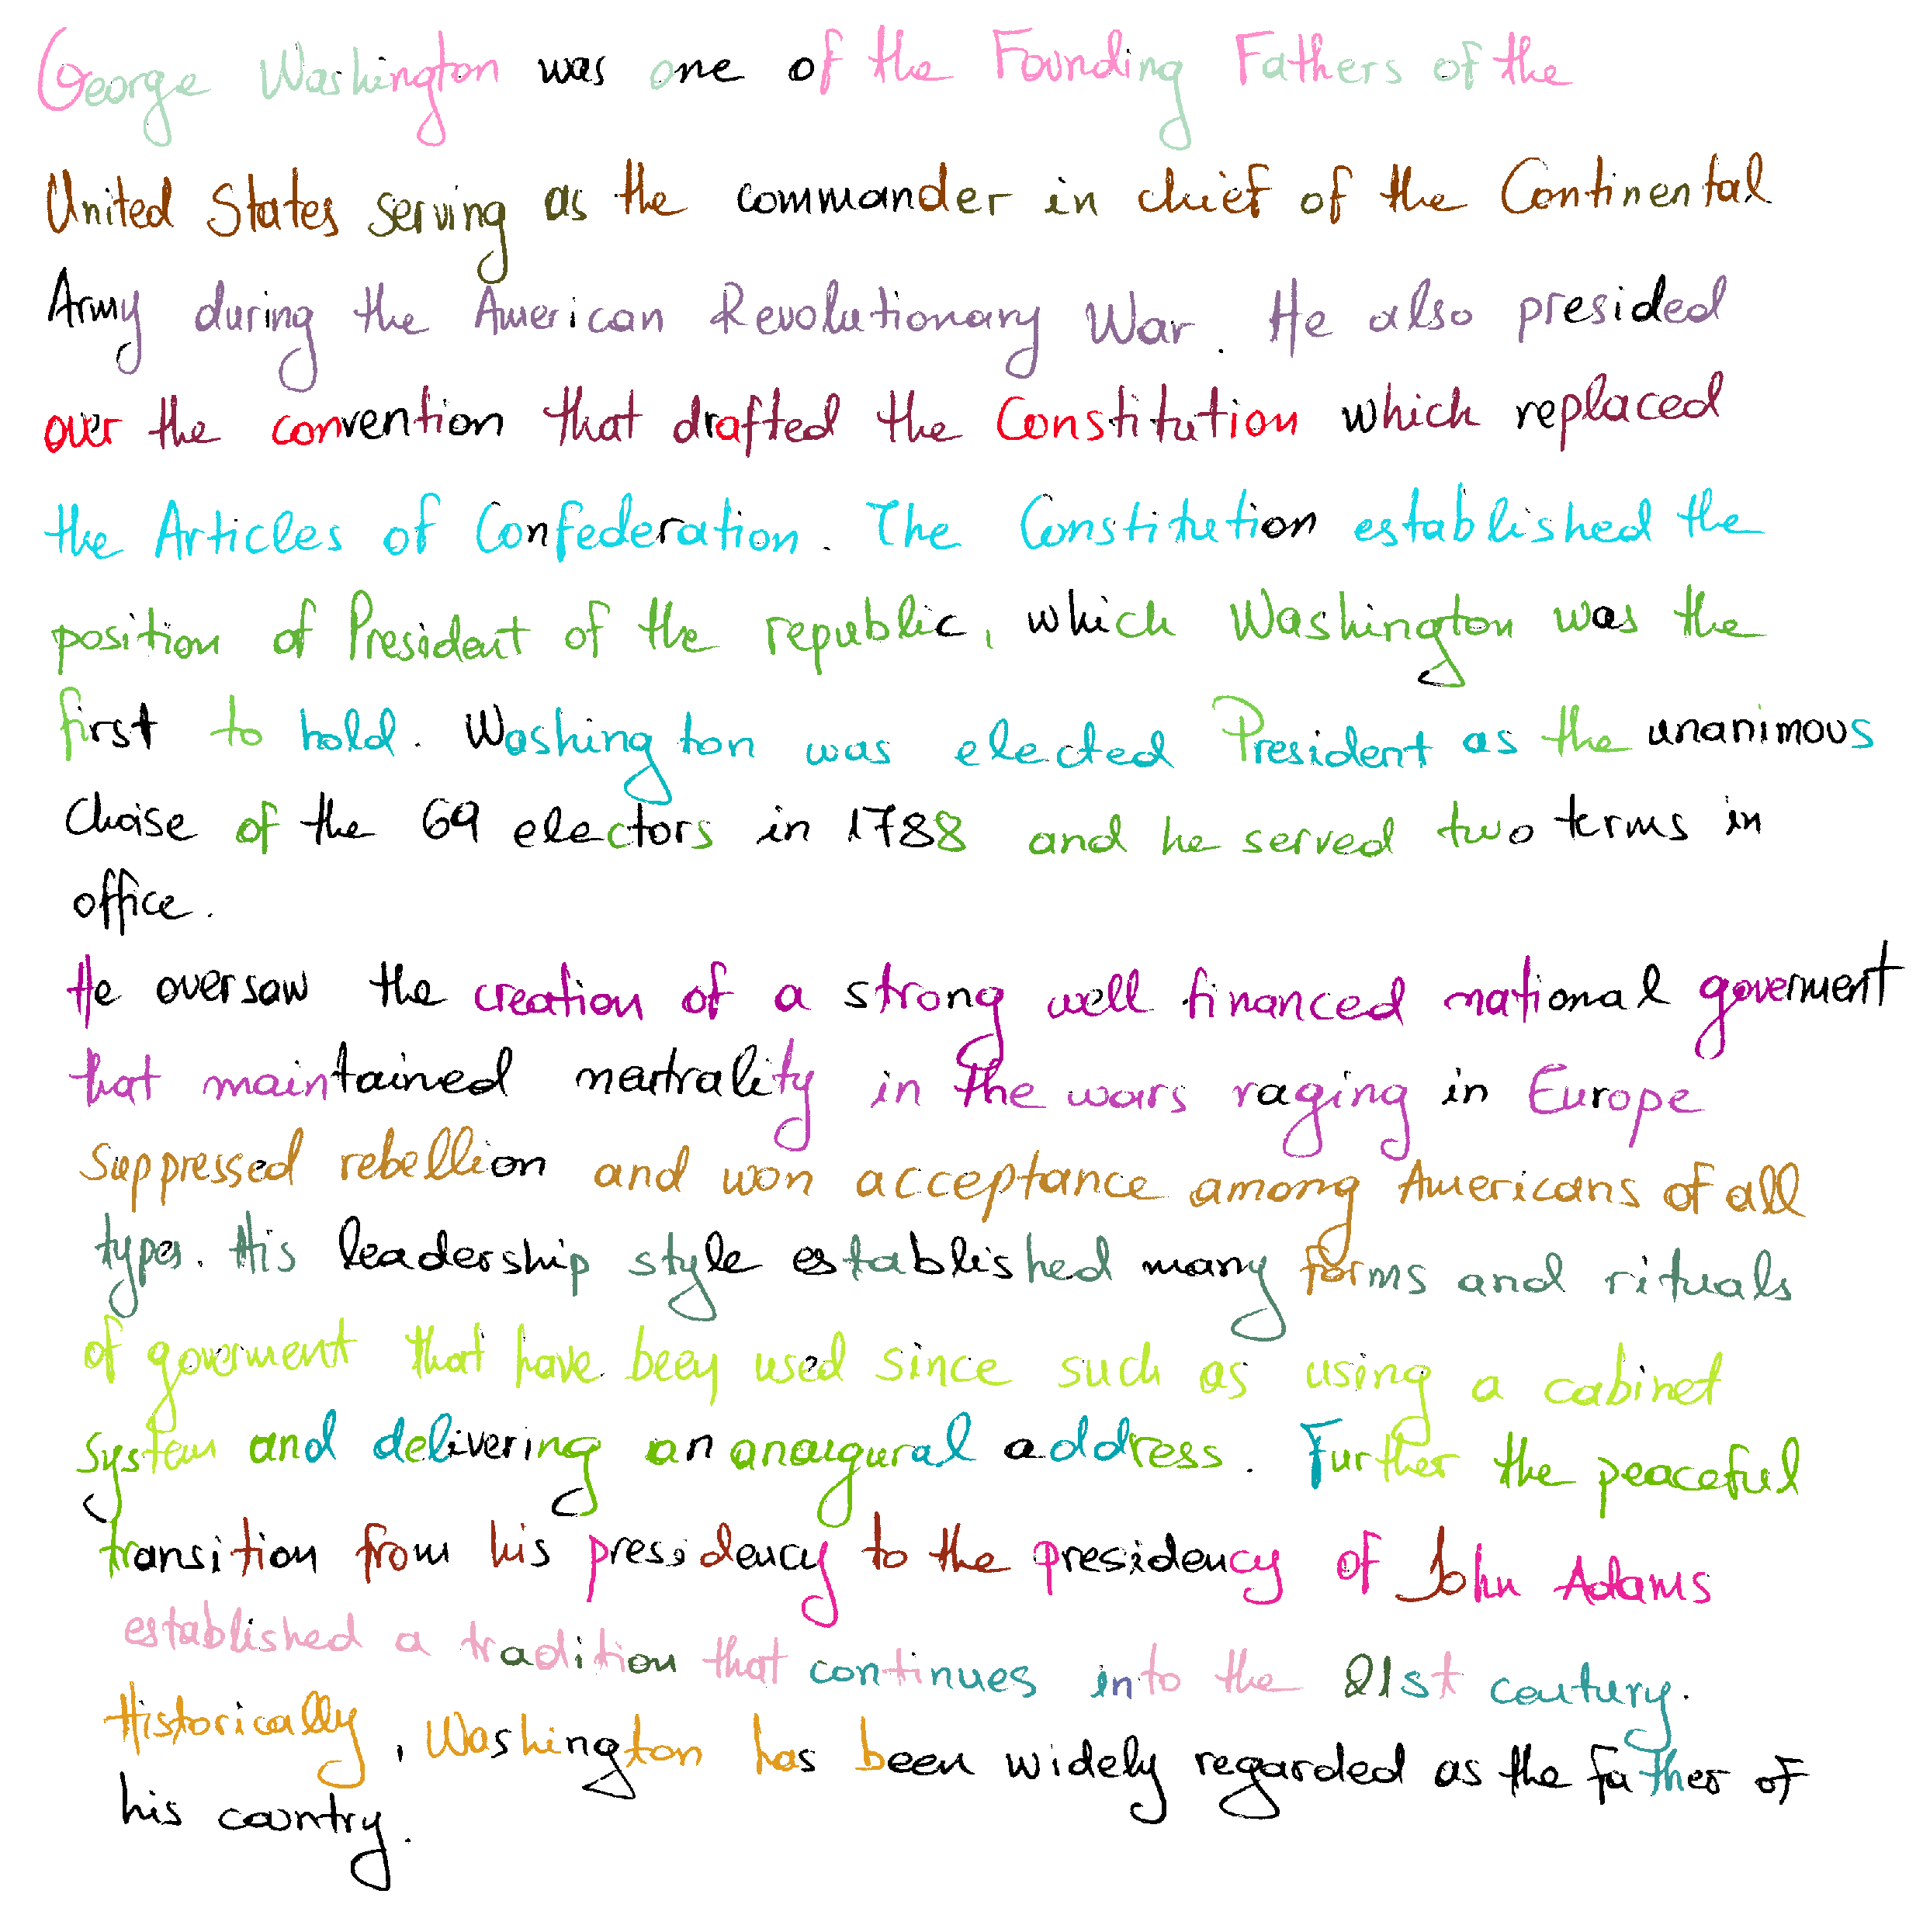 George Washington was one of the Founding Fathers of the
United States serving as the commander in chief of the Continental
Army during the American Revolutionary War. He also presided
over the convention that drafted the Constitution which replaced
the Articles of Confederation. The Constitution established the
position of President of the republic, which Washington was the
first to hold. Washington was elected President as the unanimous
choise of the 69 electors in 1788 and he served two terms in
office.
He oversaw the creation of a strong well financed national goverment
that maintained neutrality in the wars raging in Europe
suppressed rebellion and won acceptance among Americans of all
types. His leadership style established many forms and rituals
of goverment that have been used since such as using a cabinet
system and delivering an anaugural address. Further the peaceful
transition from his presidency to the presidency of John Adams
established a tradition that continues into the 21st century.
Historically, Washington has been widely regarded as the father of
his country.